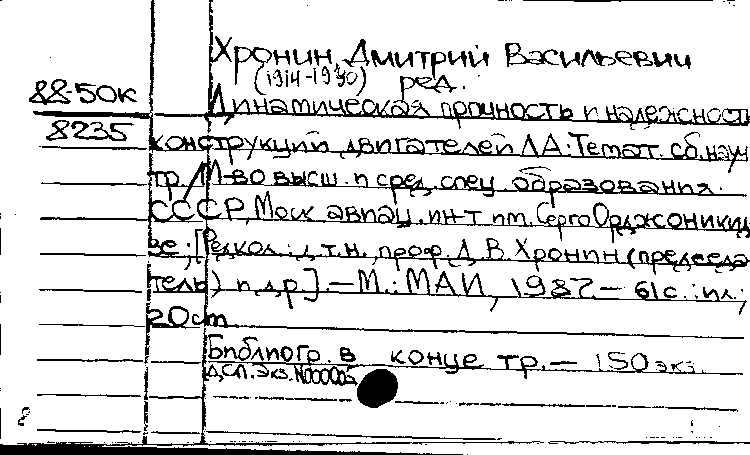 Хронин, Дмитрий Васильевич
(1914-1990) ред.
88-50к
8235
Динамическая прочность и надежност
конструкций двигателей ЛА: Темат. сб. науч
тр./М-во высш. и сред. спец. образования
СССР, Моск авиац. ин-т им. Серго Орджоникид
зе; [Редкол.: д.т.н., проф. Д.В. Хронин (председа
тель) и др.]. — М.: МАИ, 1987. — 61с.: ил.;
20cm
Библиогр. в конце тр. — 150 экз.
ДСП. Экз. N00005
8